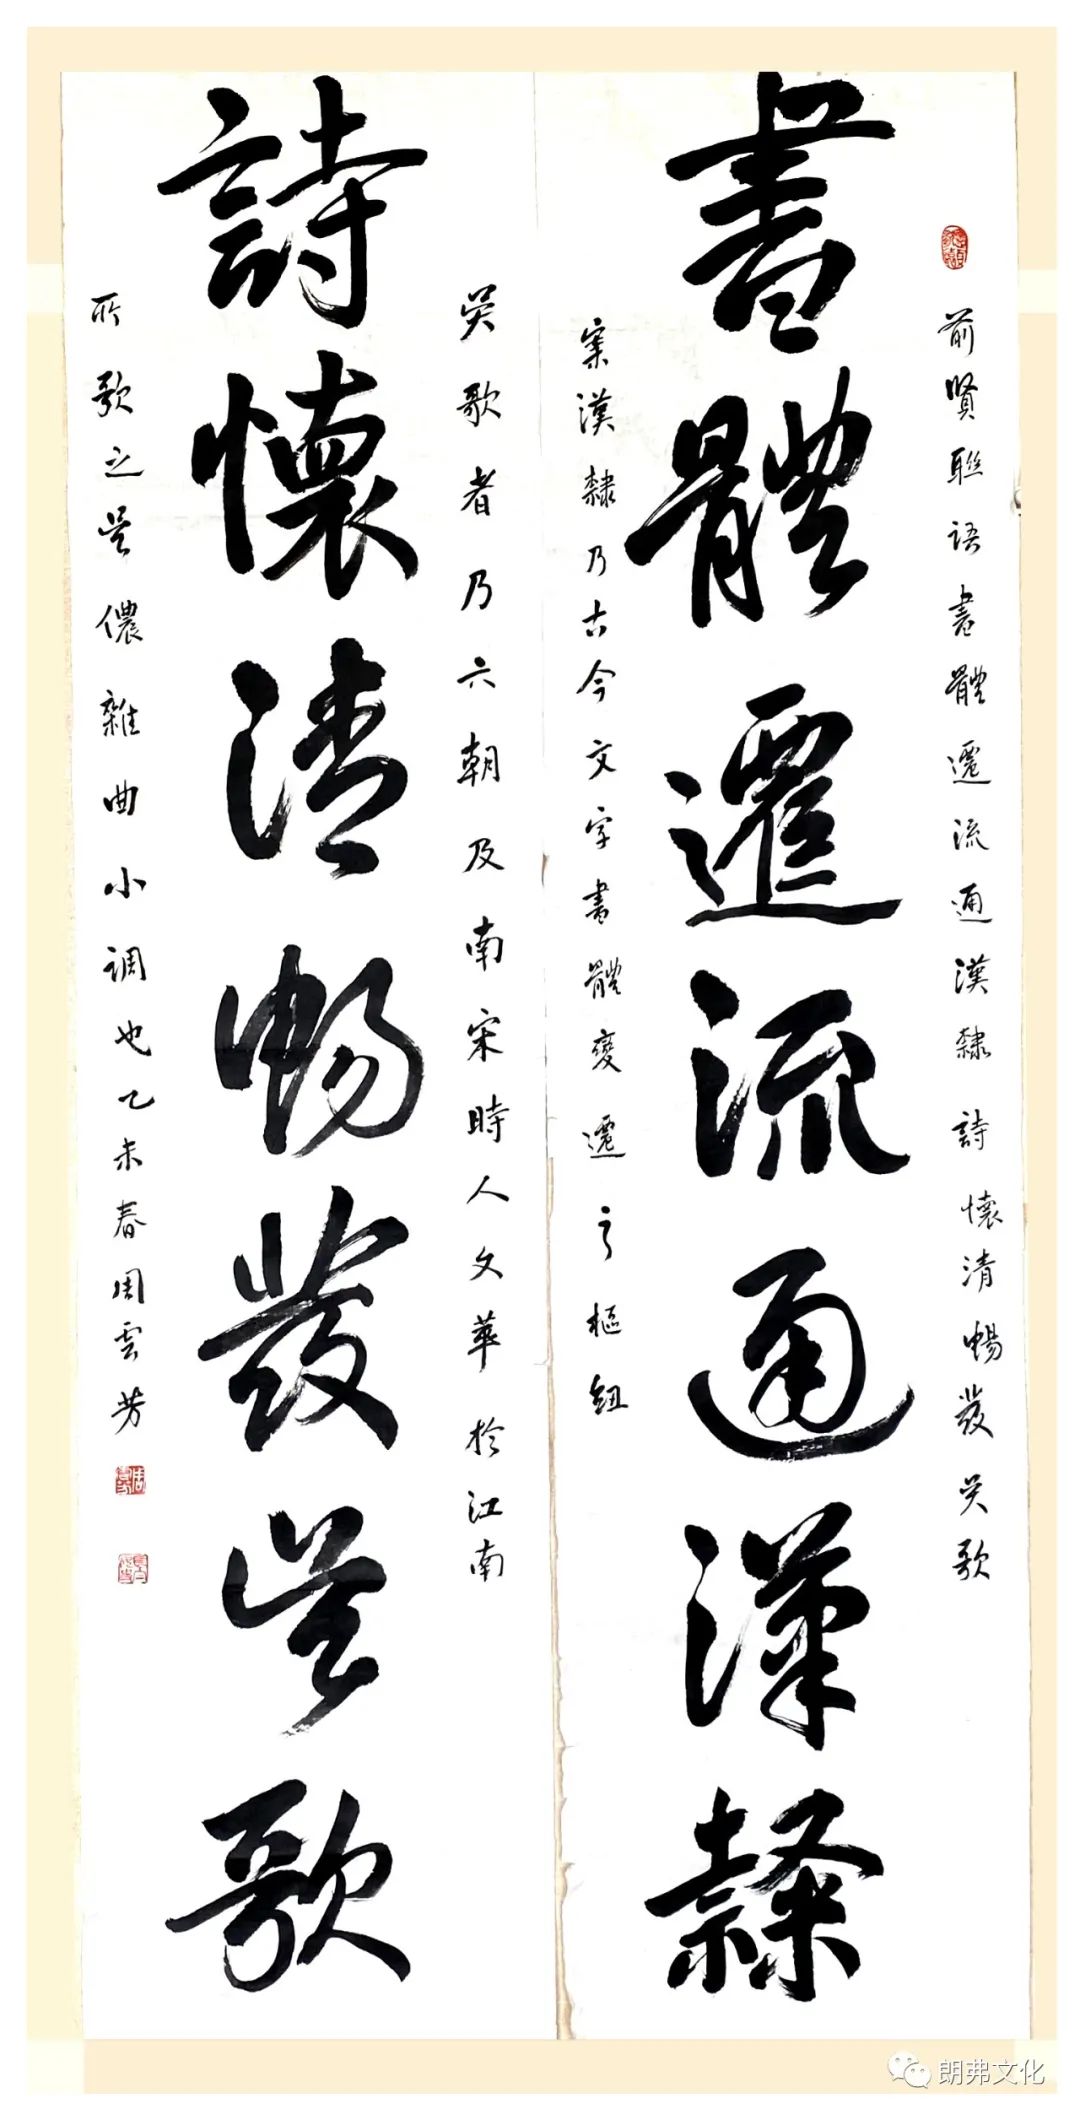 前賢聯語書體遷流通漢隸詩懷清暢發吴歌
書體遷流通漢隸
案漢隸乃古今文字書體變遷之樞紐
吴歌者乃六朝及南宋時人文華於江南
詩懷清暢發吴歌
所歌之吴儂雜曲小調也乙未春周雲芳
朗弗文化